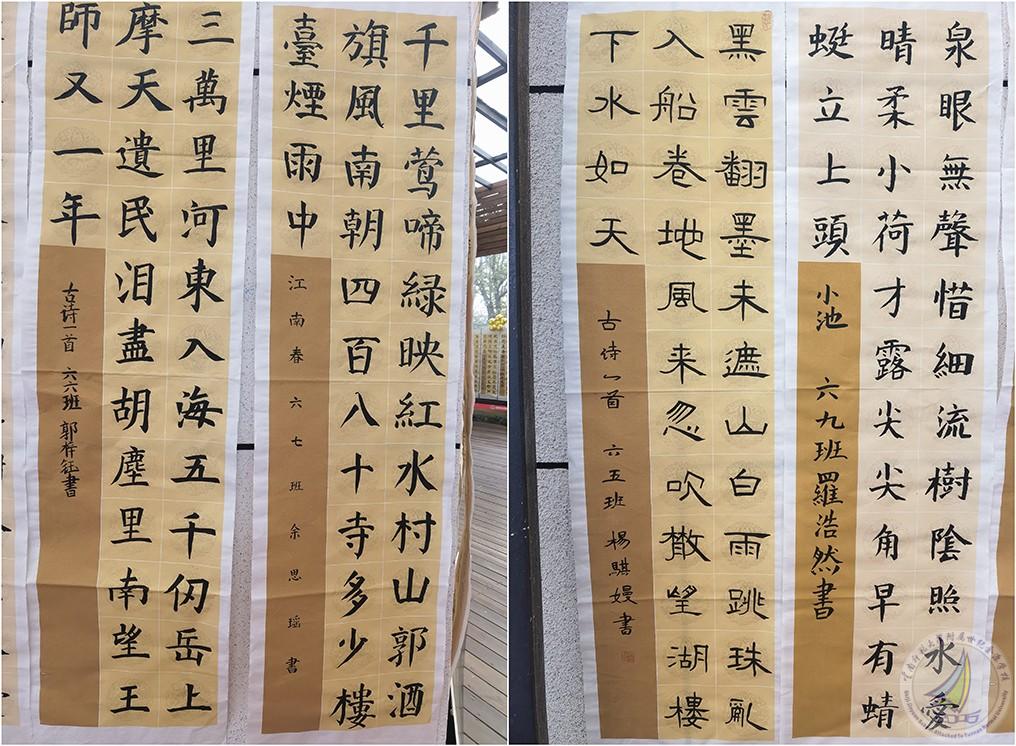 千里莺啼緑映紅水村山郭酒
旗風南朝四百八十寺多少樓
臺煙雨中
江南春六七班余思瑶書
三萬里河東入海五千仞岳上
摩天遺民泪盡胡塵里南望王
師又一年
古诗一首 六六班 郭梓鈺書
泉眼無聲惜細流樹陰照水愛
晴柔小荷才露尖尖角早有蜻
蜓立上頭
小池 六九班羅浩然書
黑雲翻墨未遮山白雨跳珠亂
入船卷地風来忽吹散望湖樓
下水如天
古诗一首 六五班 楊騏嫚書